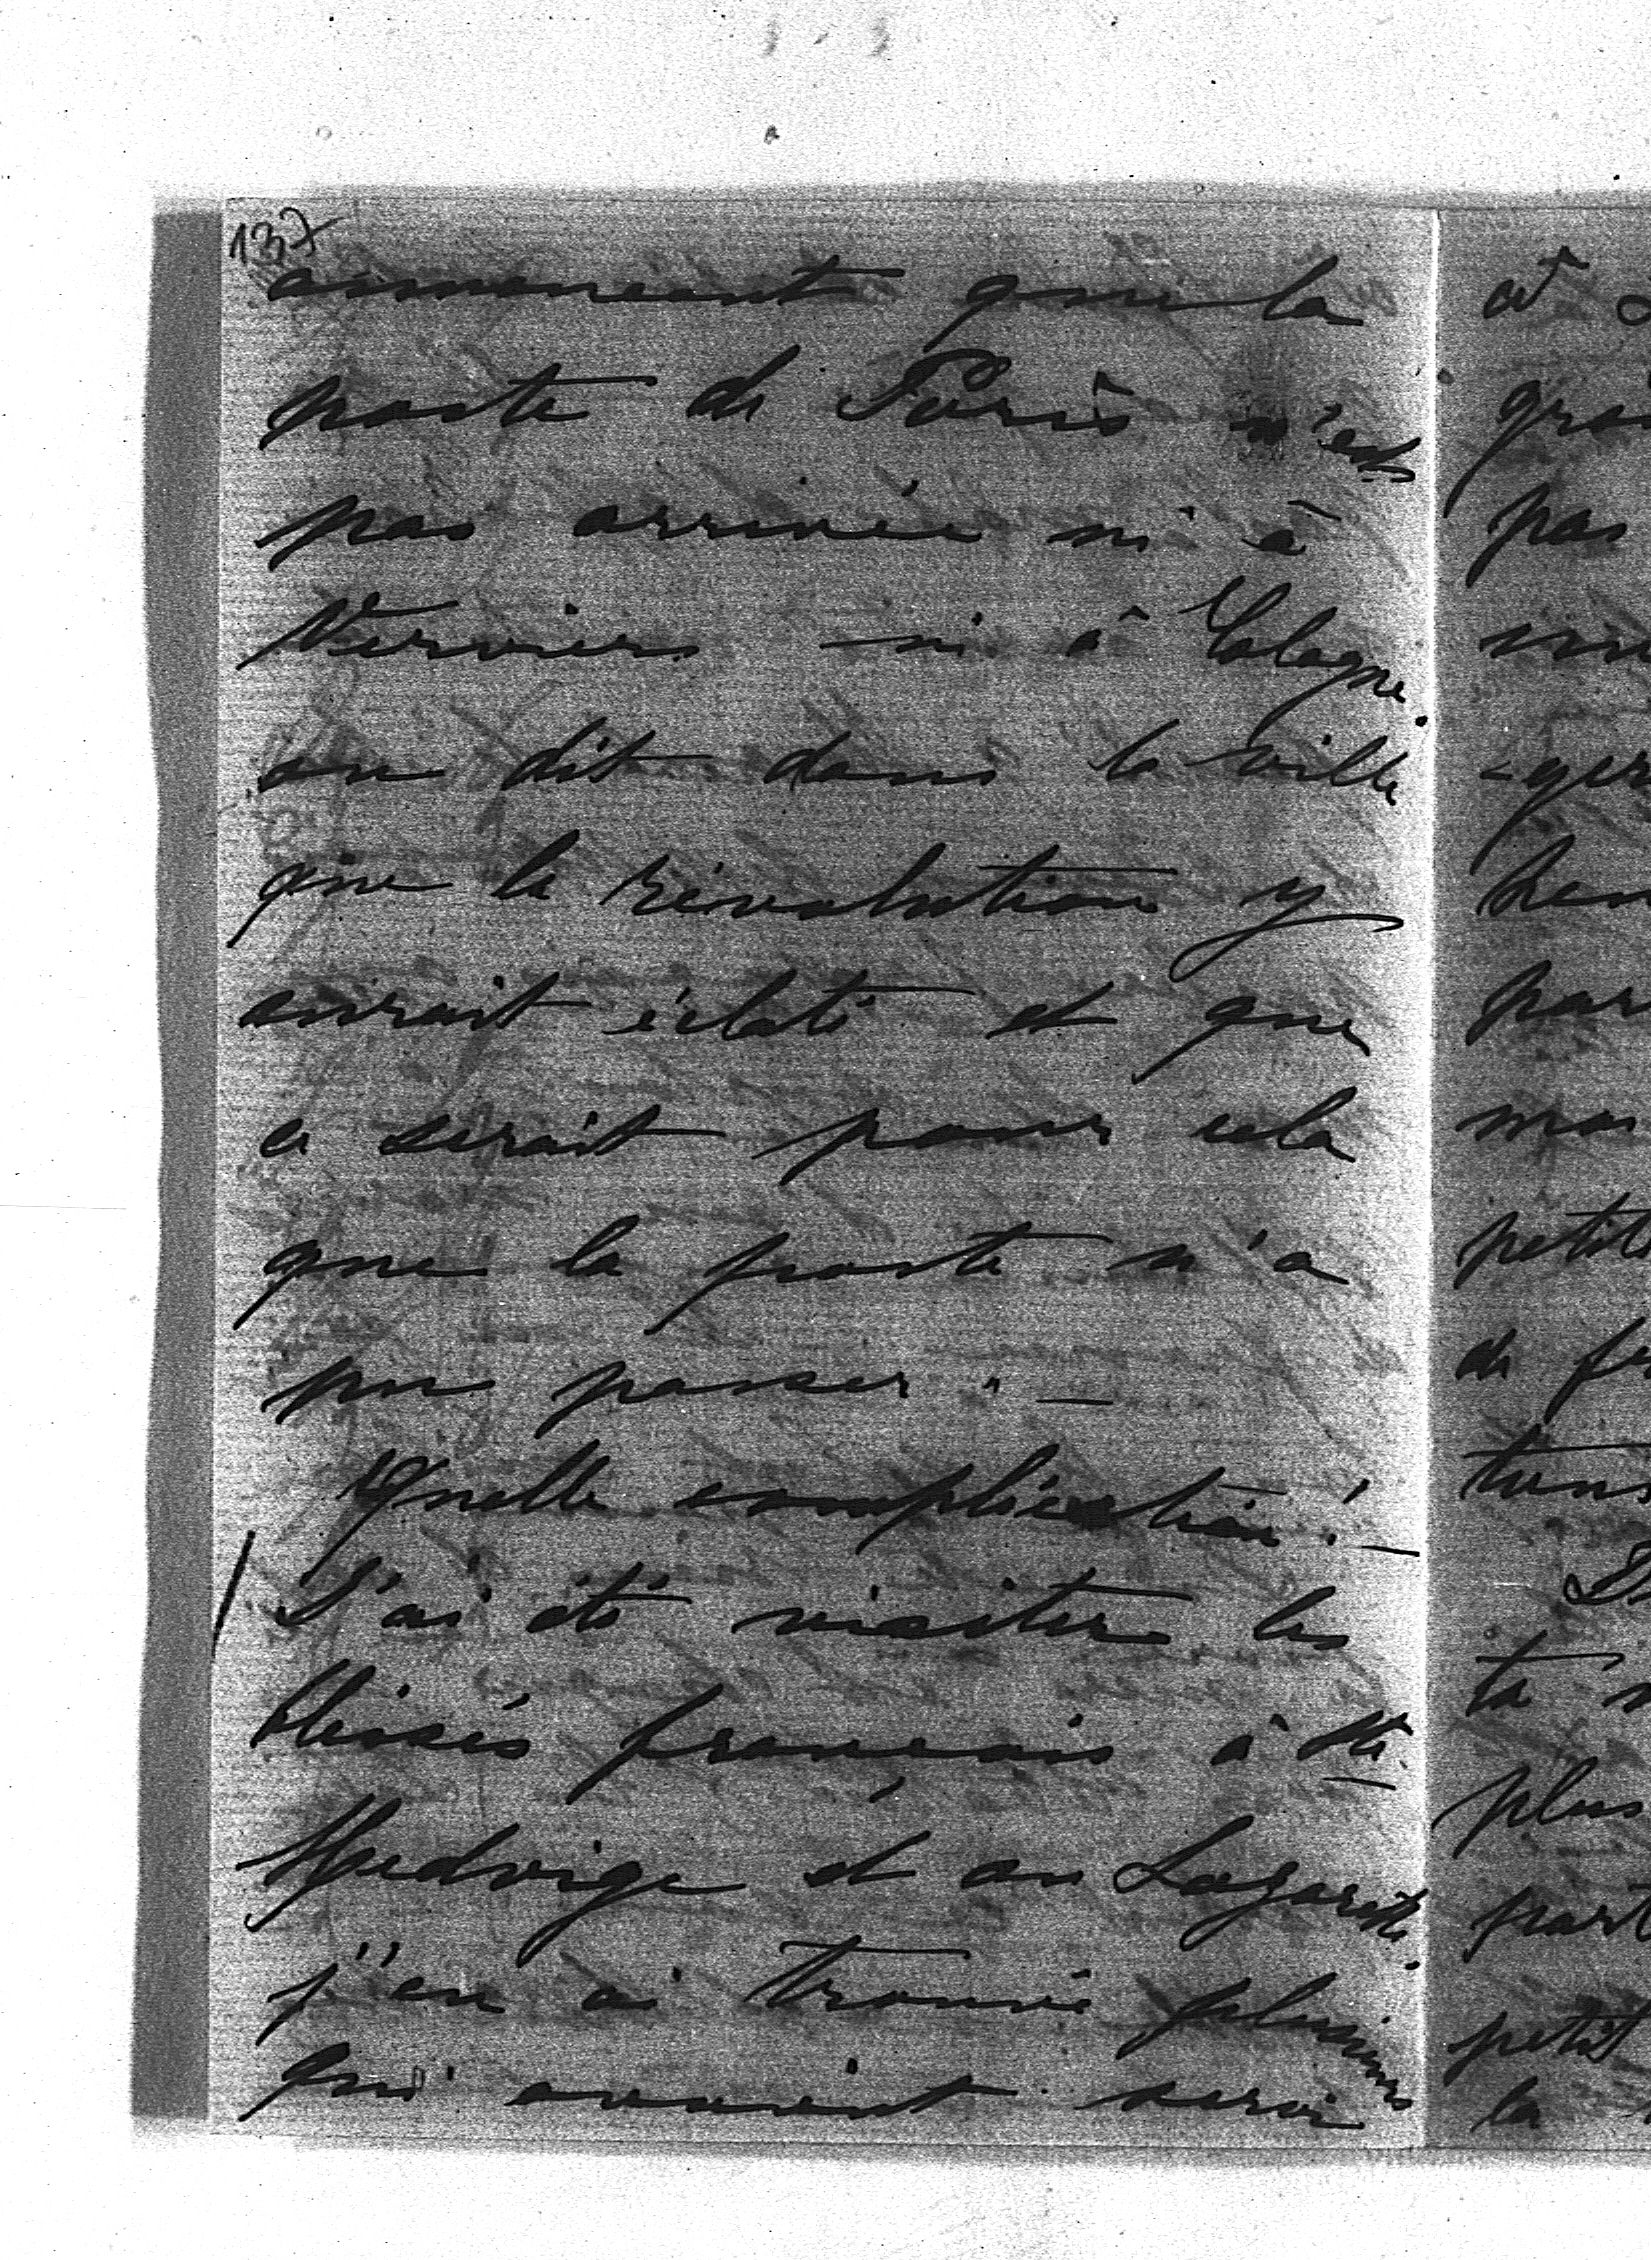 137
annoncant que la
poste de Paris n'est
pas arrivée ni à
Verviers ni à Cologne.
on dit dans la ville
que la révolution y
aurait éclaté et que
ce serait pour cela
que la poste n'a
pu passer. —
Quelle complication! —
J'ai été visiter les
blessés français à Ste
Hedvige et au Lazareth.
j'en ai trouvé plusieurs
qui avaient servi
et
pas
petit
de
plus
petit
la